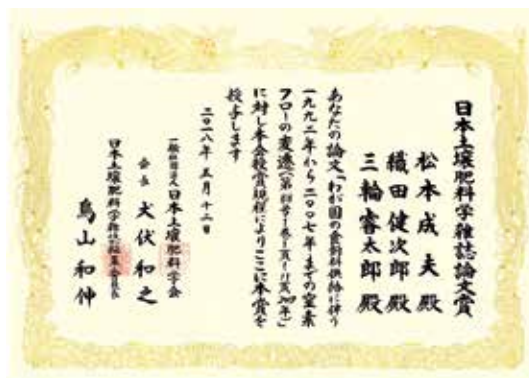 日本土壌肥料学雑誌論文賞
松本成夫 殿
織田健次郎 殿
三輪睿太郎 殿
あなたの論文「わが国の食飼料供給に伴う
一九九二年から二〇〇七年までの窒素
フローの変遷
に対し本会授賞規程によりここに本賞を
授与します
二〇一八年 五月 十二日
一般社団法人日本土壌肥料学会
会長 犬伏和之
日本土壌肥料学雑誌編集委員長
鳥山和伸